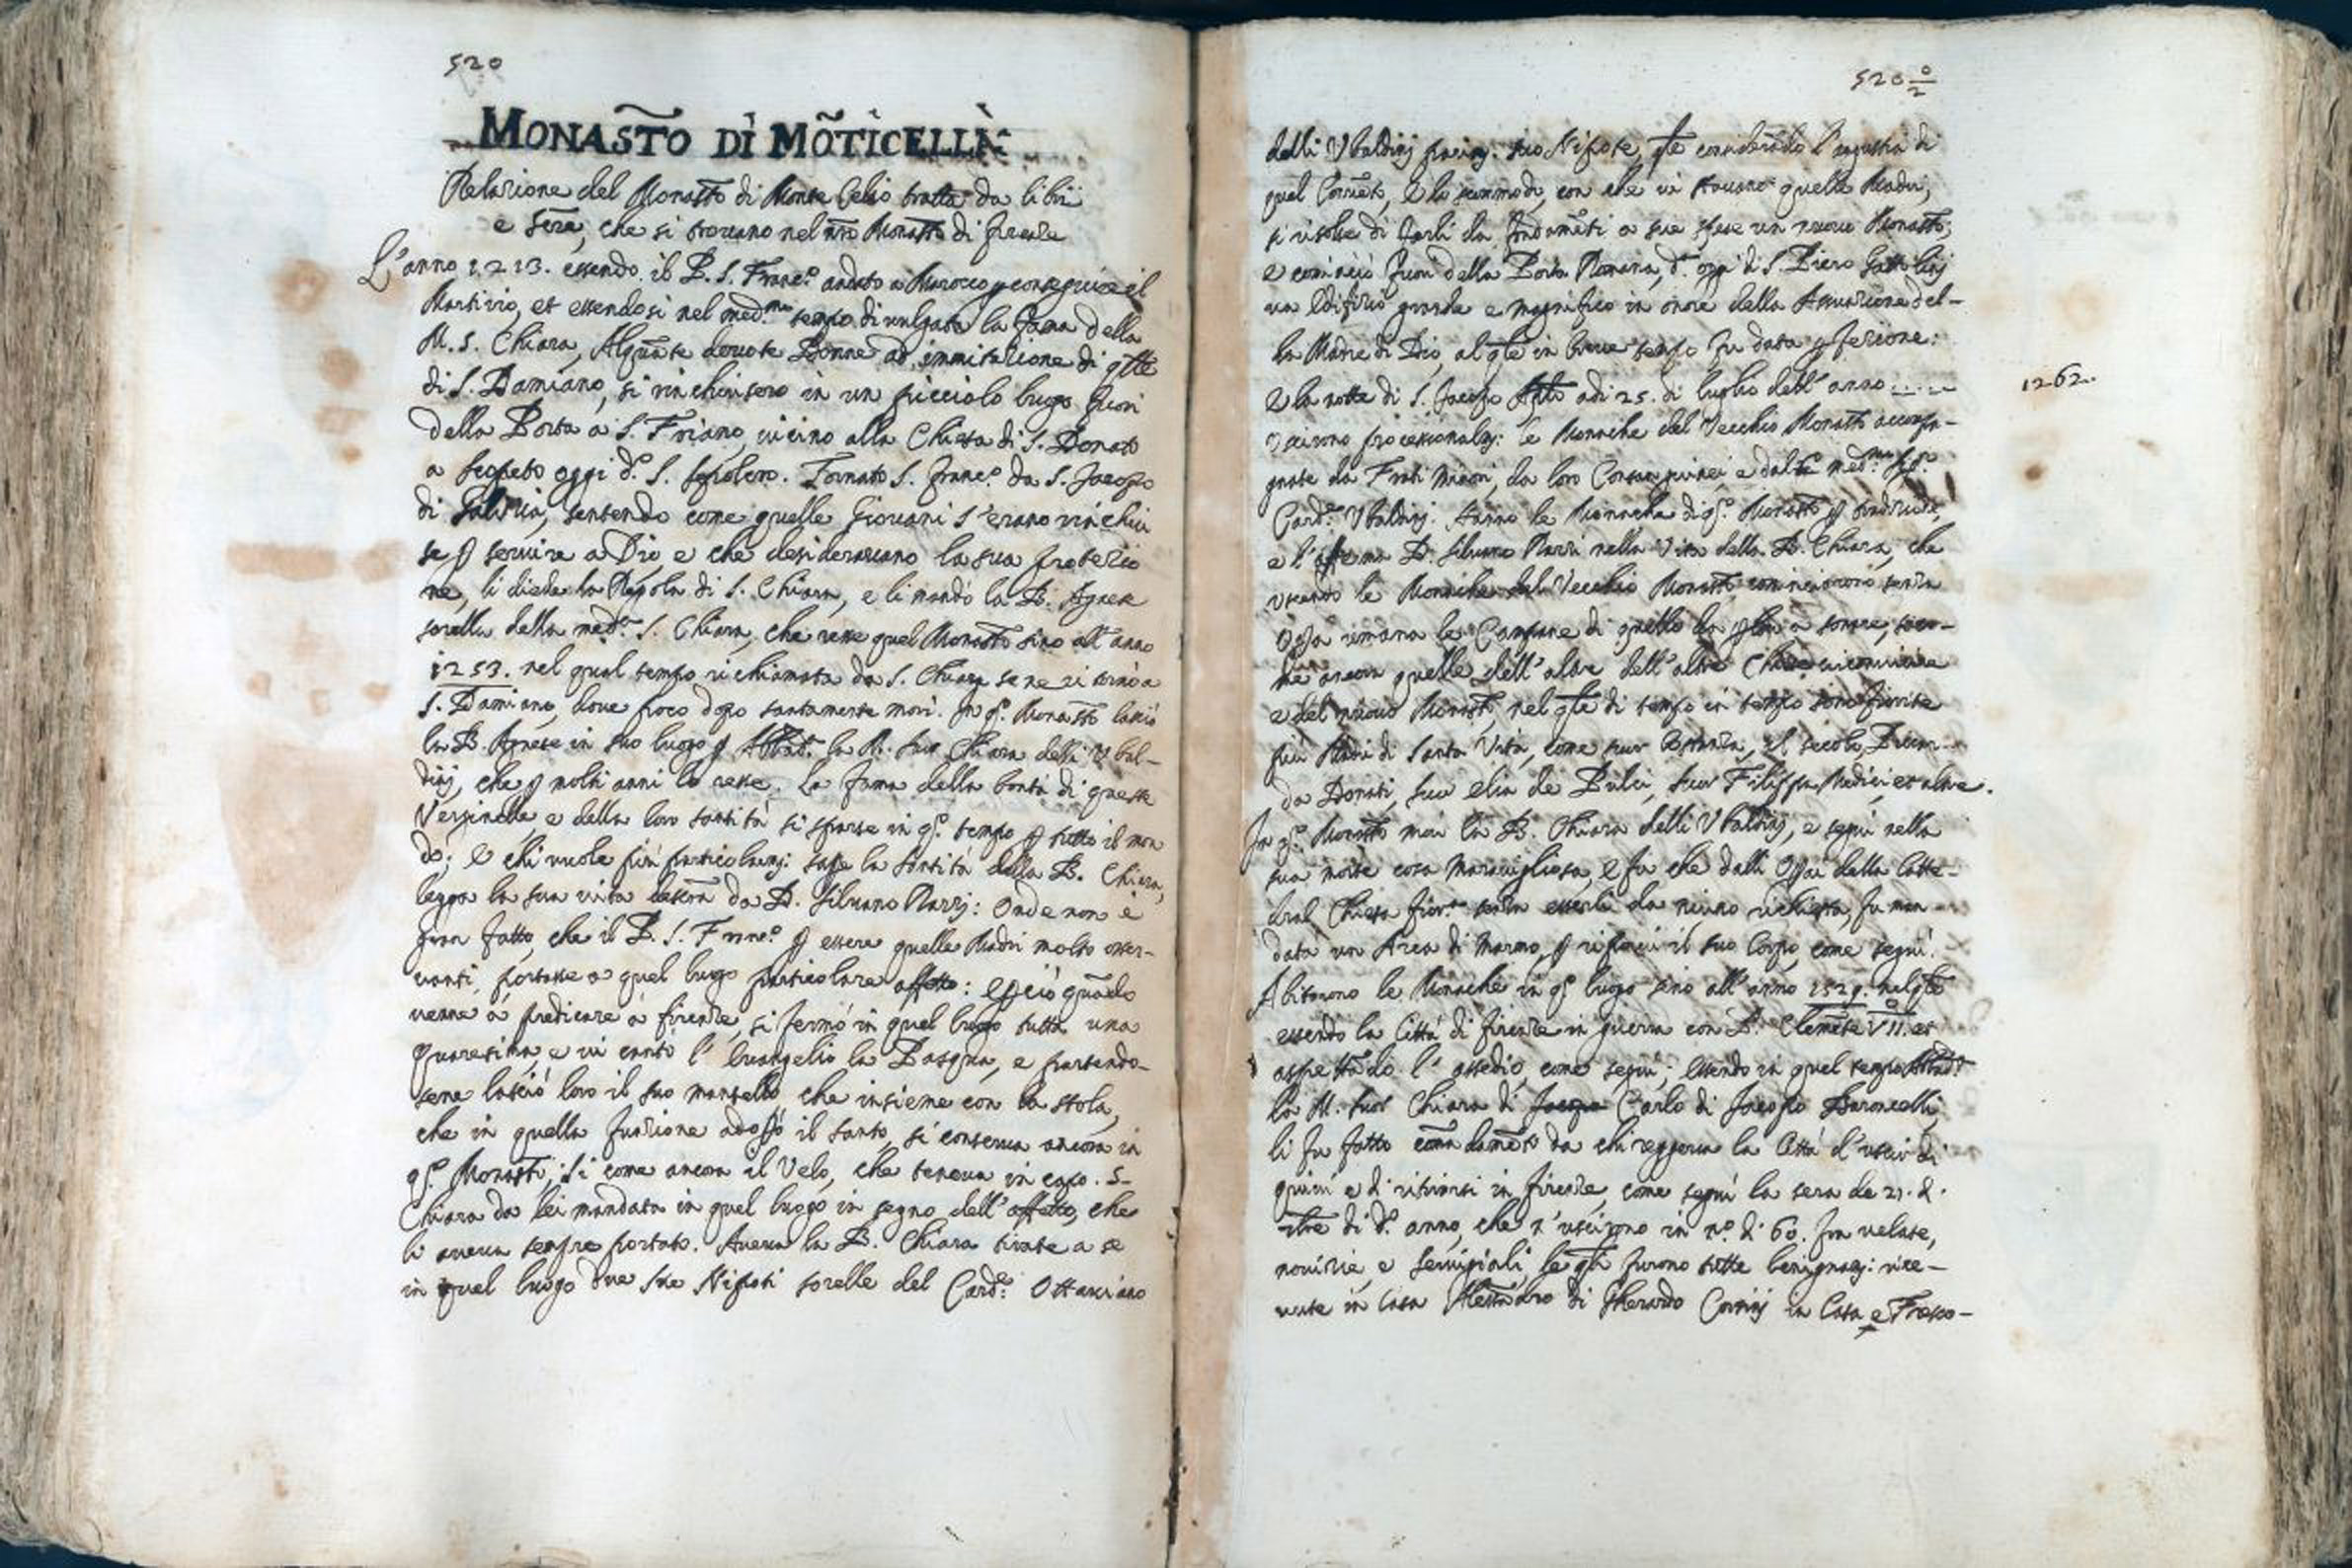 520
MONASTO DI MÕTICELLI
Relazione del Monasto di Monte Celio tratta da libri
e , che si trovano nel nro Monasto di firenze
L'anno 1213. essendo il B. S. Franc.º andato a Marocco p conseguire il
Martirio, et essendosi nel med.mo tempo divulgata la fama della
M. S. Chiara, Alquãte devote Donne ad immitazione di qlle
di S. Damiano, si rinchiusero in un picciolo luogo fuori
della Porta a S. Friano, vicino alla Chiesa di S. Donato
a Scopeto oggi d.º S. Sepolcro. Tornato S. franc.º da S. Jacopo
di Galizia, sentendo come quelle Giovani s'erano rinchiu
se p servire a Dio, e che desideravano la sua protezio
ne, li diede la Regola di S. Chiara, e li mandò la B. Agnese
sorella della med.ª S. Chiara, che resse quel Monasto sino all'anno
1253. nel qual tempo richiamata da S. Chiara se ne ritornò a
S. Damiano, dove poco dopo santamente morì. In q.º Monasto lasciò
la B. Agnese in suo luogo p Abbad.ª la M. Suor Chiara delli Ubal-
dinj, che p molti anni lo resse. La fama della bontà di queste
Verginelle e della loro santità si sparse in q.º tempo p tutto il mon
do; e chi vuole più particolarmj: sape la santità della B. Chiara,
legga la sua vita da D. Silvano Razzj: Onde non è
gran fatto, che il B. S. Franc.º p essere quelle Madri molto osser-
vanti, portasse a quel luogo particolare affetto: e p ciò quãdo
venne à predicare à firenze, si fermò in quel luogo tutta una
Quaresima, e vi cantò l'Evangelio la Pasqua, e partendo-
sene lasciò loro il suo mantello, che insieme con la stola,
che in quella funzione adopò il Santo, si conserva ancora in
q.º Monasto; Si come ancora il Velo, che teneva in capo S.
Chiara da lei mandata in quel luogo in segno dell'affetto, che
li aveva sempre portato. Aveva la B. Chiara tirate a se
in quel luogo due sue Nipoti sorelle del Card.e Ottaviano
520 0/2
delli Ubaldinj suo Nipote, qle considerãdo l'angustia di
quel Convẽto, e lo scommodo, con che vi stavano quelle Madri,
si risolse di farli da fondamẽti a sue spese un nuovo Monasto,
e cominciò fuori della Porta Romana, d.ª oggi di S. Piero Gattolinj
un Edifizio grande e magnifico in onore della Assunzione del-
la Madre di Dio, al qle in breve tempo fu data pfezione:
E la notte di S. Jacopo Aplo adi 25. di luglio dell'anno .....
1262.
Uscirono processionalmj: le Monache del Vecchio Monasto accompa-
gnate da Frati Minori, da loro Consanguinei, e dal med.mo
Card.e Ubaldinj. Anno le Monache di q.º Monasto p tradizione,
e l'afferma D. Silvano Razzi nella Vita della B. Chiara, che
uscendo le Monache del Vecchio Monasto cominciarono senza
Opa umana le Campane di quello da p loro à sonare, sona-
ne ancora quelle dell'altre dell'altre Chiese circonvicine
e del nuovo Monasto, nel qle di tempo in tempo sono fiorite
più Madri di Santa Vita, come suor Costanza, Piccar-
da Donati, Suor elia de Pulci, Suor Filippa Medici, et altre.
In q.º Monasto morì la B. Chiara delli Ubaldinj, e seguì nella
sua morte cosa maravigliosa, e fu che dalli Opai della Catte-
dral Chiesa fior.ª senza esserli da niuno richiesta, fu man
data un Arca di Marmo, p riporvi il suo Corpo, come seguì.
Abitorono le Monache in q.º luogo sino all'anno 1529. nel qle
essendo la Città di firenze in guerra con P. Clemẽte VII. et
aspettãdo l'assedio, come seguì; essendo in quel tempo Abbad.ª
la M. Suor Chiara di Jacopo Carlo di Jacopo Baroncelli,
li fu fatto comãdamẽto da chi reggeva la Città d'uscir di
quivi e di ritirarsi in firenze, come seguì la sera de 21. d.
di d.º anno, che n'uscirono in n.º di 60. fra velate,
novizie, e servigiali, le qli furono tutte benignamj: rice-
vute in Casa Alessãdro di Gherardo Corsinj in Casa e Fresco-